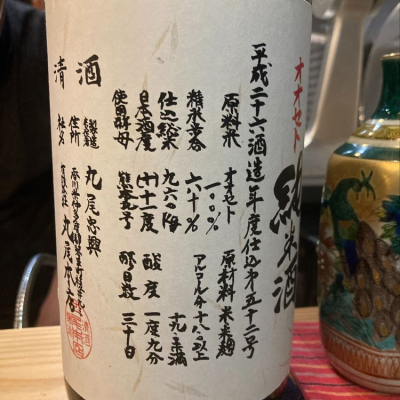 オオセト
純米酒
平成二十六酒造年度仕込第五十二号
原料米 オオセト 一〇〇%
原材料 米 米麹
精米歩合 六十%
アルコール分 十八以上
十九未満
仕込総米 九六〇kg
日本酒度 (+)十一度
酸度 一度九分
使用酵母 熊本9号
酛日数 三十日
清酒
製造
製造者 丸尾忠興
住所
社名 丸尾本店